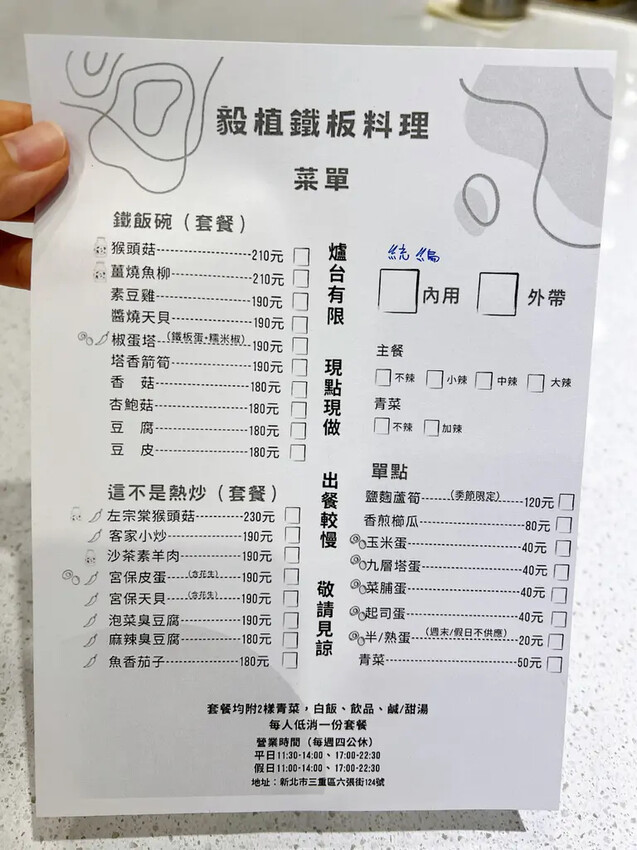 毅植鐵板料理
菜單
鐵飯碗（套餐）
猴頭菇-----210元
薑燒魚柳-----210元
素豆雞-----190元
醬燒天貝-----190元
椒蛋塔（鐵板蛋+糯米椒）190元
塔香箭筍-----190元
香 菇-----180元
杏鮑菇-----180元
豆 腐-----180元
豆 皮-----180元
這不是熱炒（套餐）
左宗棠猴頭菇-----230元
客家小炒-----190元
沙茶素羊肉-----190元
宮保皮蛋--（含花生）--190元
宮保天貝--（含花生）--190元
泡菜臭豆腐-----190元
麻辣臭豆腐-----180元
魚香茄子-----180元
爐台有限
現點現做
出餐較慢
敬請見諒
統編
內用 外帶
主餐
不辣 小辣 中辣 大辣
青菜
不辣 加辣
單點
鹽麴蘆筍---（季節限定）---120元
香煎櫛瓜-----80元
玉米蛋-----40元
九層塔蛋-----40元
菜脯蛋-----40元
起司蛋-----40元
半/熟蛋--（週末/假日不供應）20元
青菜-----50元
套餐均附2樣青菜，白飯、飲品、鹹/甜湯
每人低消一份套餐
營業時間（每週四公休）
平日11:30-14:00、17:00-22:30
假日11:00-14:00、17:00-22:30
地址：新北市三重區六張街124號